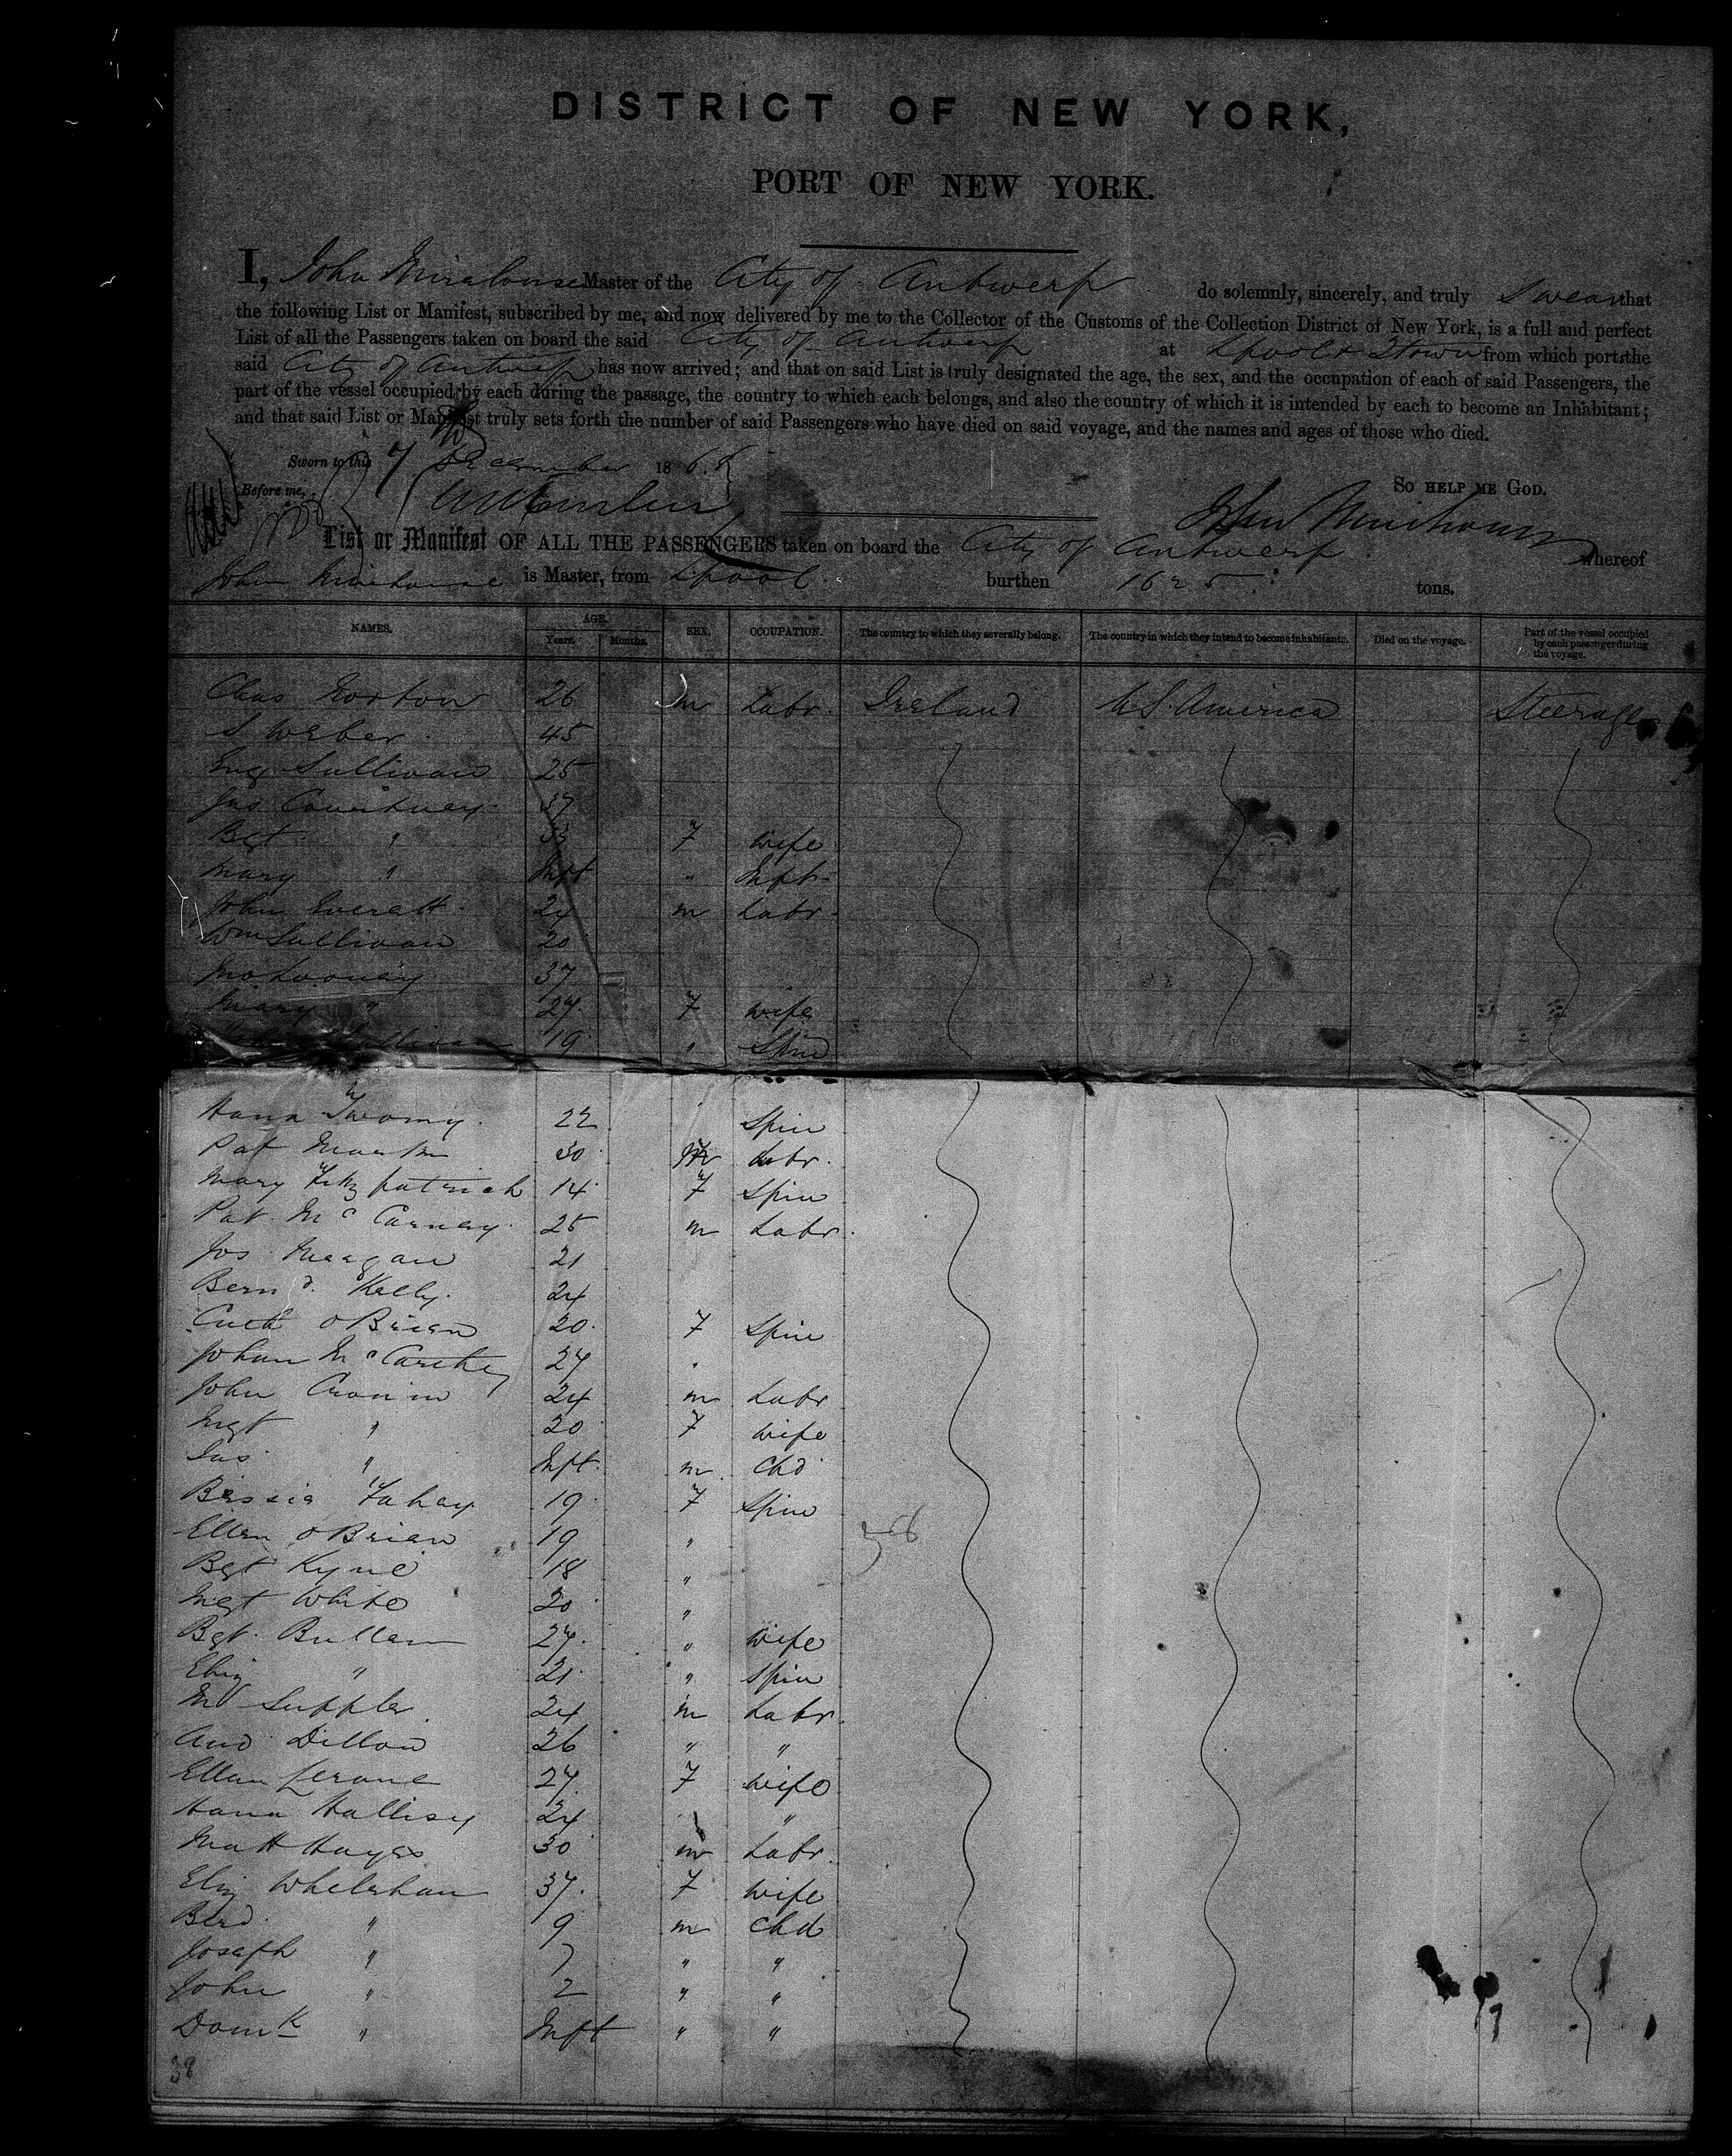 DISTRICT OF NEW YORK,
PORT OF NEW YORK.
I, John Mirehouse Master of the City of Antwerp do solemnly, sincerely, and truly Swear that
the following List or Manifest, subscribed by me, and now delivered by me to the Collector of the Customs of the Collection District of New York, is a full and perfect
List of all the Passengers taken on board the said City of Antwerp at Lpool & Qtown from which ports the
said City of Antwerp has now arrived; and that on said List is truly designated the age, the sex, and the occupation of each of said Passengers, the
part of the vessel occupied by each during the passage, the country to which each belongs, and also the country of which it is intended by each to become an Inhabitant;
and that said List or Manifest truly sets forth the number of said Passengers who have died on said voyage, and the names and ages of those who died.
Sworn to this 7 December 1868
So HELP ME GOD.
Before me,
John Mirehouse
List or Manifest OF ALL THE PASSENGERS taken on board the City of Antwerp whereof
John Mirehouse is Master, from Lpool burthen 1625 tons.
NAMES. AGE. Years. Months. SEX. OCCUPATION. The country to which they severally belong. The country in which they intend to become inhabitants. Died on the voyage. Part of the vessel occupied by each passenger during the voyage.
Chas Horton 26 m Labr. Ireland U.S. America Steerage
S Weber 45
Eug Sullivan 25
Jas Courtney 37
Bgt " 33 F wife
Mary " Inft " Inft
John Everett 24 m Labr.
Wm Sullivan 20
Jno Looney 37
Mary " 27 F wife
Sullivan 19 " Spin
Hana Twomy 22 Spin
Pat Martin 30 m Labr.
Mary Fitzpatrick 14 F Spin
Pat McCarney 25 m Labr.
Jos Meagan 21
Bernd. Kelly 24
Cath OBrien 20 F Spin
Johan McCarthy 27 "
John Cronin 24 m Labr
Mgt " 20 F wife
Jas " Inft m Chd
Bessie Fahey 19 F Spin
Ellen OBrien 19 "
Bgt Kyne 18 "
Mgt White 20 "
Bgt. Bullen 27 " wife
Eliz " 21 " Spin
Md Suppler 24 m Labr
And Dillon 26 " "
Ellen Lerane 27 F wife
Hana Hallisy 24 "
Matt Hayes 30 m Labr.
Eliz Whelehan 37 F wife
Berd " 9 m Chd
Joseph " 7 " "
John " 2 " "
Domk " Inft " "
38